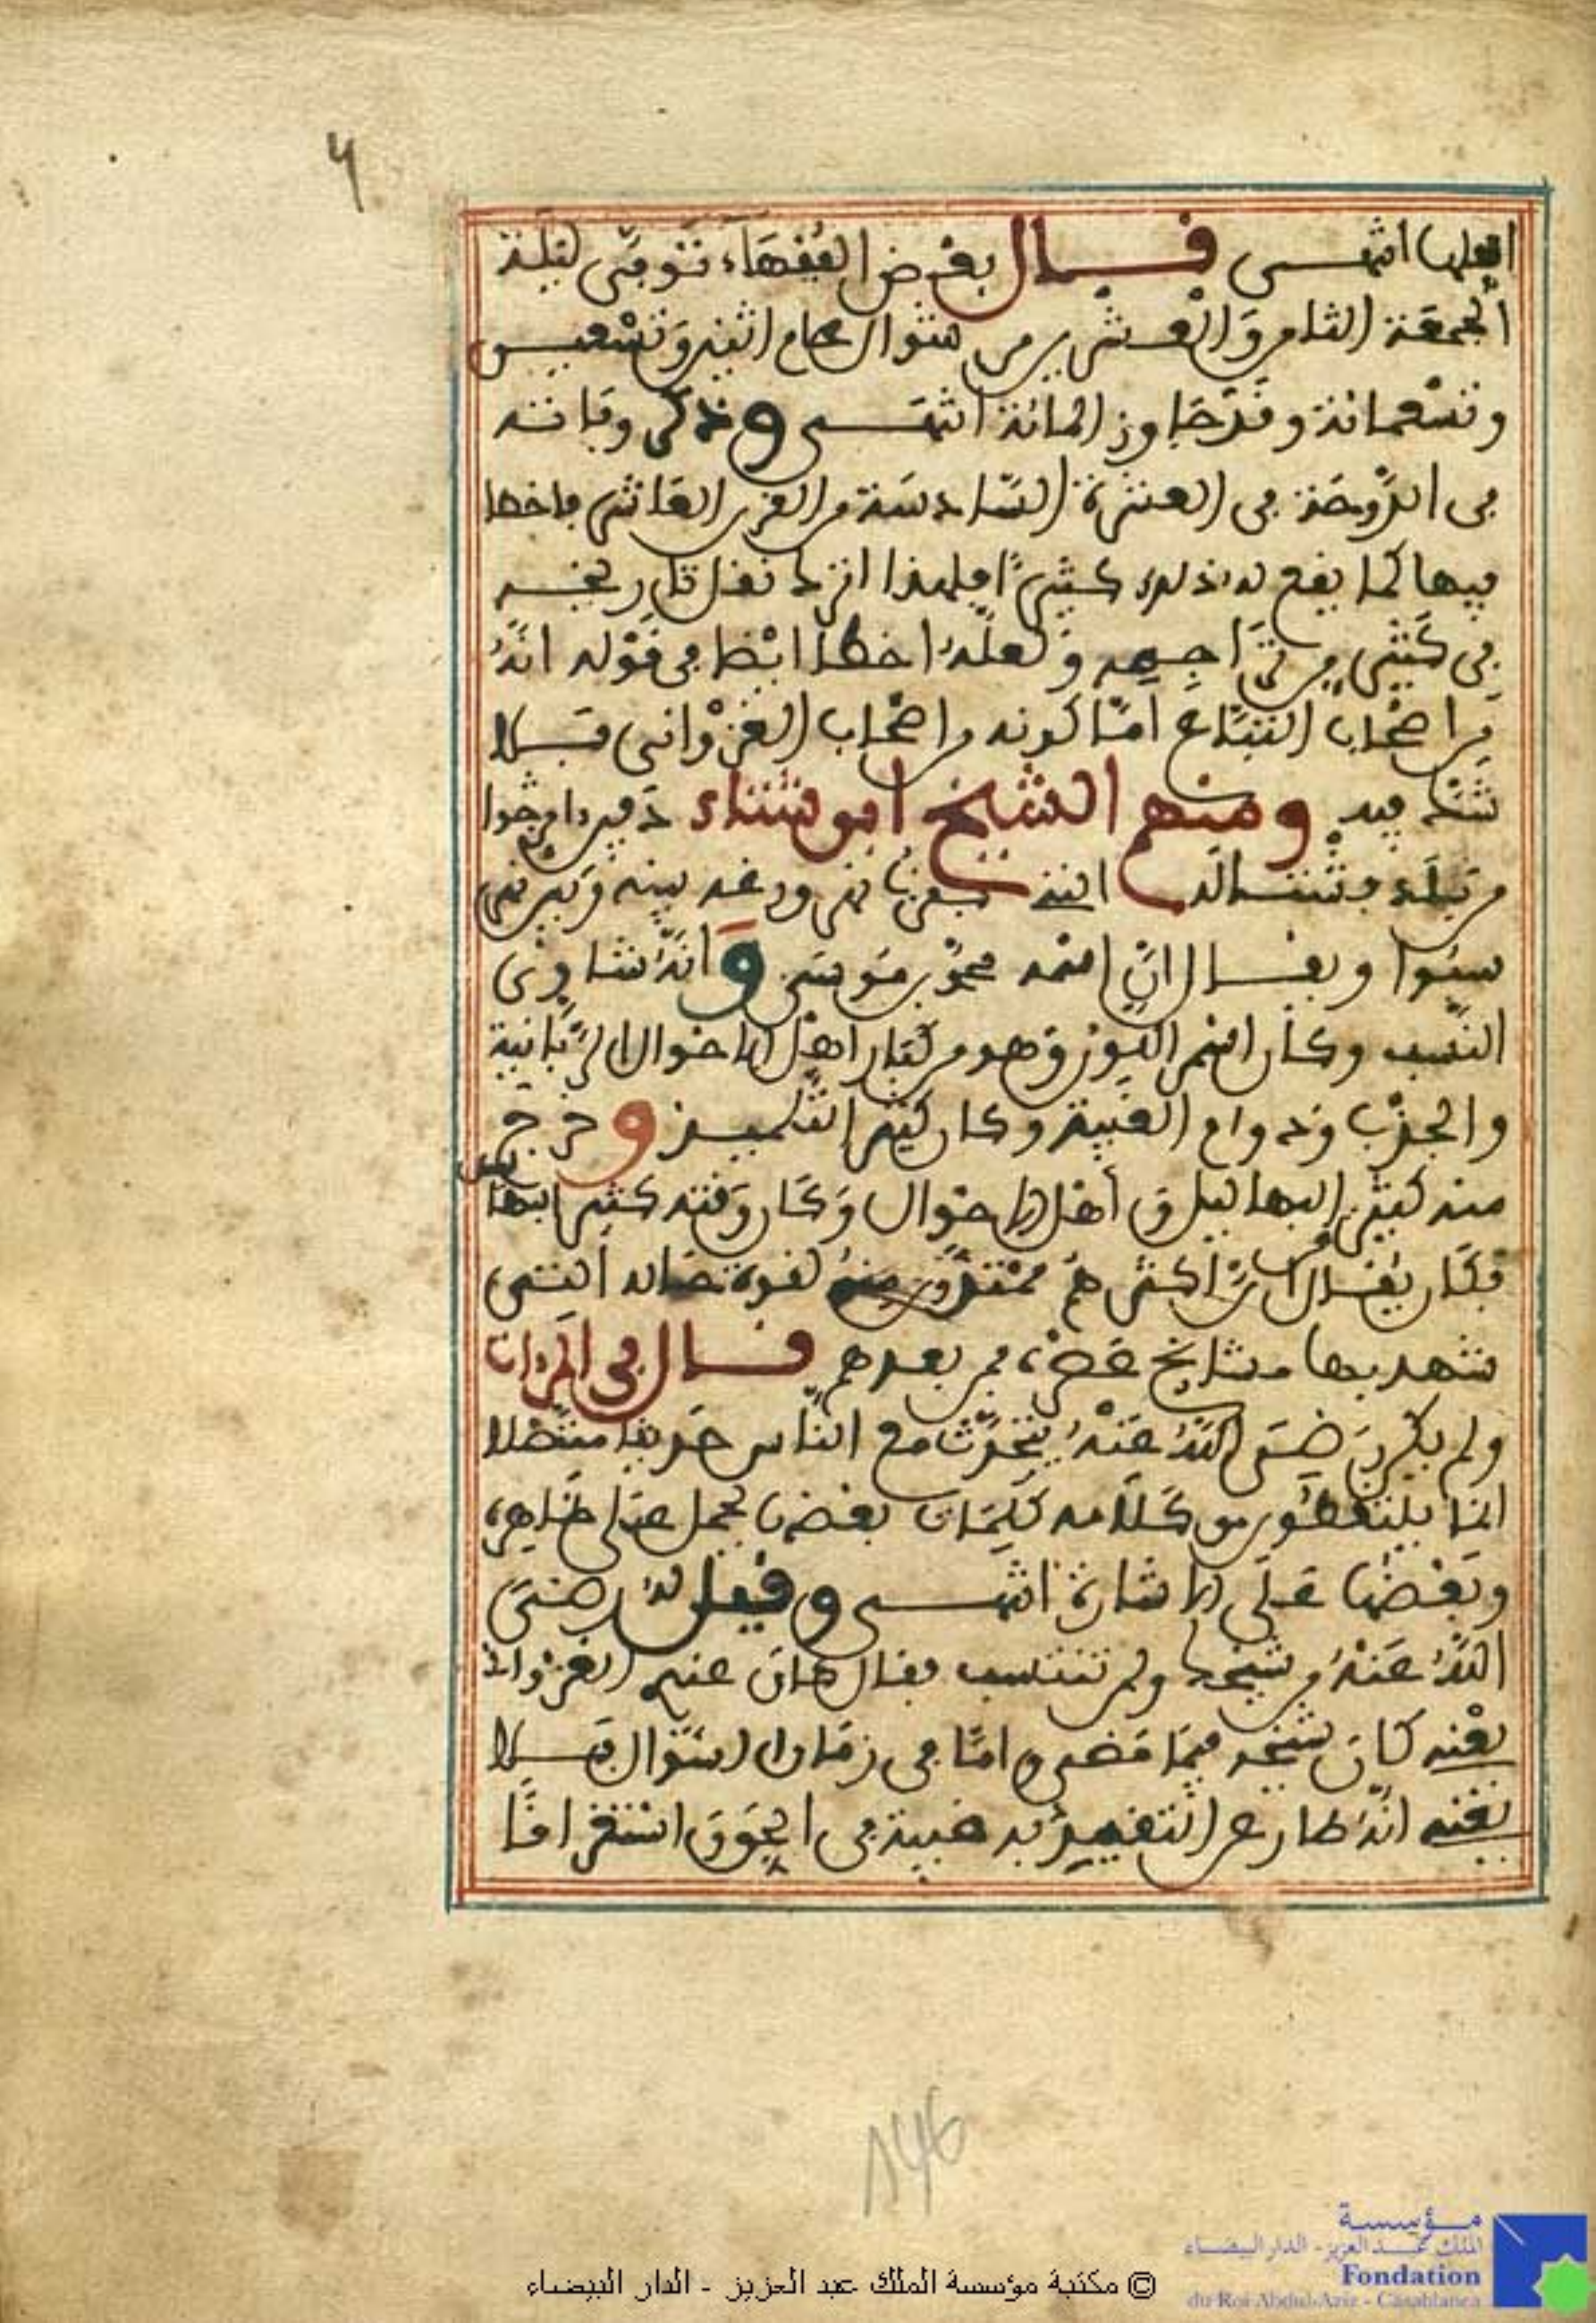 ٦
العليا انتهى قال بعض الفقهاء توفي ليلة
الجمعة الثامن والعشرين من شوال عام اثنين وتسعين
وتسعمائة وقد جاوز المائة انتهى وذكر وفاته
في الدوحة في العشرة السادسة من القرن العاشر فاخطا
فيها كما يقع له ذلك كثيرا فلهذا انزك نقل تاريخه
في كثير من تراجمه ولعله اخطا ايضا في قوله انه
من اصحاب التباع اما كونه من اصحاب الغزواني فلا
شك فيه ومنهم الشيخ ابو شتاء دفين امرجوا
من بلد فشتالة بينه وبين نهر
سبوا ويقال ان اسمه محمد بن موسى وانه شاوي
النسب وكان اسمر اللون وهو من كبار اهل الاحوال الربانية
والجذب ودوام الغيبة وكان كثير التلميذ وخرج
منه كثير البهاليل واهل الاحوال وكان وقته كثير البهاليل
فكان يقال ان اكثرهم ممتدون منه لقوة حاله التي
شهد بها مشايخ عصره فمن بعدهم قال في المرءات
ولم يكن رضي الله عنه يتحدث مع الناس حديثا متصلا
انما يلتقطون من كلامه كلمات بعضها يحمل على ظاهره
وبعضها على الاشارة انتهى وقيل له رضي
الله عنه من شيخك ولمن تنتسب فقال مات عني الغزواني
يعني كان شيخه فيما مضى واما في زمان السؤال فلا
يعني انه طار عن التقييد به غيبة في الحق استغراقا
146
© مكتبة مؤسسة الملك عبد العزيز - الدار البيضاء
مؤسسة
الملك عبد العزيز - الدار البيضاء
Fondation
du Roi Abdul-Aziz - Casablanca